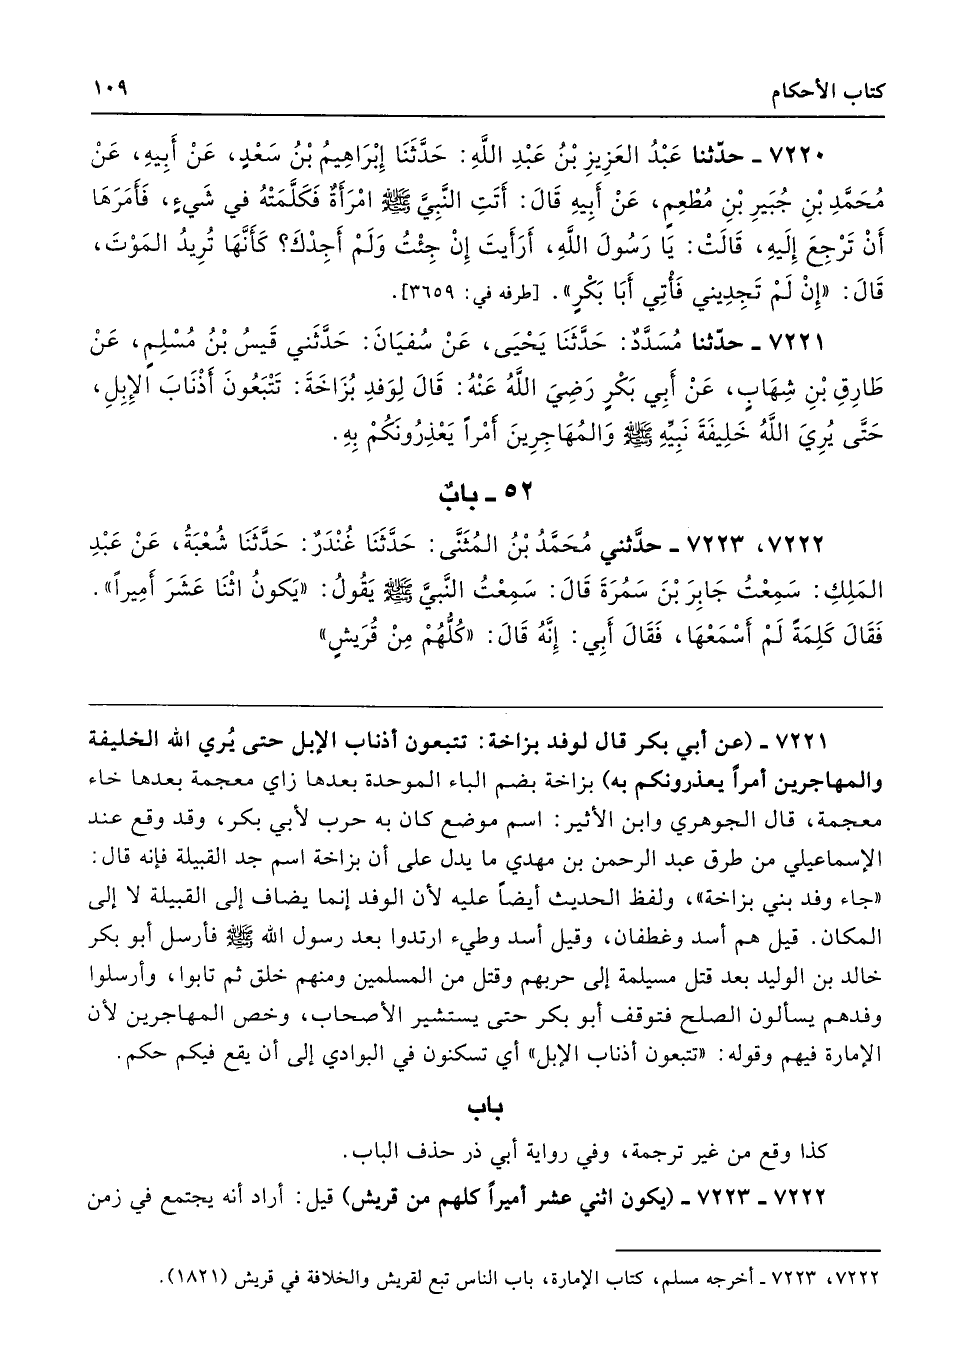 كتاب الأحكام ١٠٩
٧٢٢٠ ـ حدّثنا عَبْدُ العَزِيزِ بْنُ عَبْدِ اللَّهِ: حَدَّثَنَا إِبْرَاهِيمُ بْنُ سَعْدٍ، عَنْ أَبِيهِ، عَنْ
مُحَمَّدِ بْنِ جُبَيرِ بْنِ مُطْعِمٍ، عَنْ أَبِيهِ قَالَ: أَتَتِ النَّبِيَّ ﷺ امْرَأَةٌ فَكَلَّمَتْهُ في شَيءٍ، فَأَمَرَهَا
أَنْ تَرْجِعَ إِلَيهِ، قَالَتْ: يَا رَسُولَ اللَّهِ، أَرَأَيتَ إِنْ جِئْتُ وَلَمْ أَجِدْكَ؟ كَأَنَّهَا تُرِيدُ المَوْتَ،
قَالَ: «إِنْ لَمْ تَجِدِيني فَأْتِي أَبَا بَكْرٍ». [طرفه في: ٣٦٥٩].
٧٢٢١ ـ حدّثنا مُسَدَّدٌ: حَدَّثَنَا يَحْيَى، عَنْ سُفيَانَ: حَدَّثَني قَيسُ بْنُ مُسْلِمٍ، عَنْ
طَارِقِ بْنِ شِهَابٍ، عَنْ أَبِي بَكْرٍ رَضِيَ اللَّهُ عَنْهُ: قَالَ لِوَفدِ بُزَاخَةَ: تَتْبَعُونَ أَذْنَابَ الإِبِلِ،
حَتَّى يُرِيَ اللَّهُ خَلِيفَةَ نَبِيِّهِ ﷺ وَالمُهَاجِرِينَ أَمْراً يَعْذِرُونَكُمْ بِهِ.
٥٢ ـ بابٌ
٧٢٢٢، ٧٢٢٣ ـ حدَّثني مُحَمَّدُ بْنُ المُثَنَّى: حَدَّثَنَا غُنْدَرٌ: حَدَّثَنَا شُعْبَةُ، عَنْ عَبْدِ
المَلِكِ: سَمِعْتُ جَابِرَ بْنَ سَمُرَةَ قَالَ: سَمِعْتُ النَّبِيَّ ﷺ يَقُولُ: «يَكونُ اثْنَا عَشَرَ أَمِيراً».
فَقَالَ كَلِمَةً لَمْ أَسْمَعْهَا، فَقَالَ أَبِي: إِنَّهُ قَالَ: «كُلُّهُمْ مِنْ قُرَيشٍ»
٧٢٢١ ـ (عن أبي بكر قال لوفد بزاخة: تتبعون أذناب الإبل حتى يُري الله الخليفة
والمهاجرين أمراً يعذرونكم به) بزاخة بضم الباء الموحدة بعدها زاي معجمة بعدها خاء
معجمة، قال الجوهري وابن الأثير: اسم موضع كان به حرب لأبي بكر، وقد وقع عند
الإسماعيلي من طرق عبد الرحمن بن مهدي ما يدل على أن بزاخة اسم جد القبيلة فإنه قال:
«جاء وفد بني بزاخة»، ولفظ الحديث أيضاً عليه لأن الوفد إنما يضاف إلى القبيلة لا إلى
المكان. قيل هم أسد وغطفان، وقيل أسد وطيء ارتدوا بعد رسول الله ﷺ فأرسل أبو بكر
خالد بن الوليد بعد قتل مسيلمة إلى حربهم وقتل من المسلمين ومنهم خلق ثم تابوا، وأرسلوا
وفدهم يسألون الصلح فتوقف أبو بكر حتى يستشير الأصحاب، وخص المهاجرين لأن
الإمارة فيهم وقوله: «تتبعون أذناب الإبل» أي تسكنون في البوادي إلى أن يقع فيكم حكم.
باب
كذا وقع من غير ترجمة، وفي رواية أبي ذر حذف الباب.
٧٢٢٢ ـ ٧٢٢٣ ـ (يكون اثني عشر أميراً كلهم من قريش) قيل: أراد أنه يجتمع في زمن
٧٢٢٢، ٧٢٢٣ ـ أخرجه مسلم، كتاب الإمارة، باب الناس تبع لقريش والخلافة في قريش (١٨٢١).